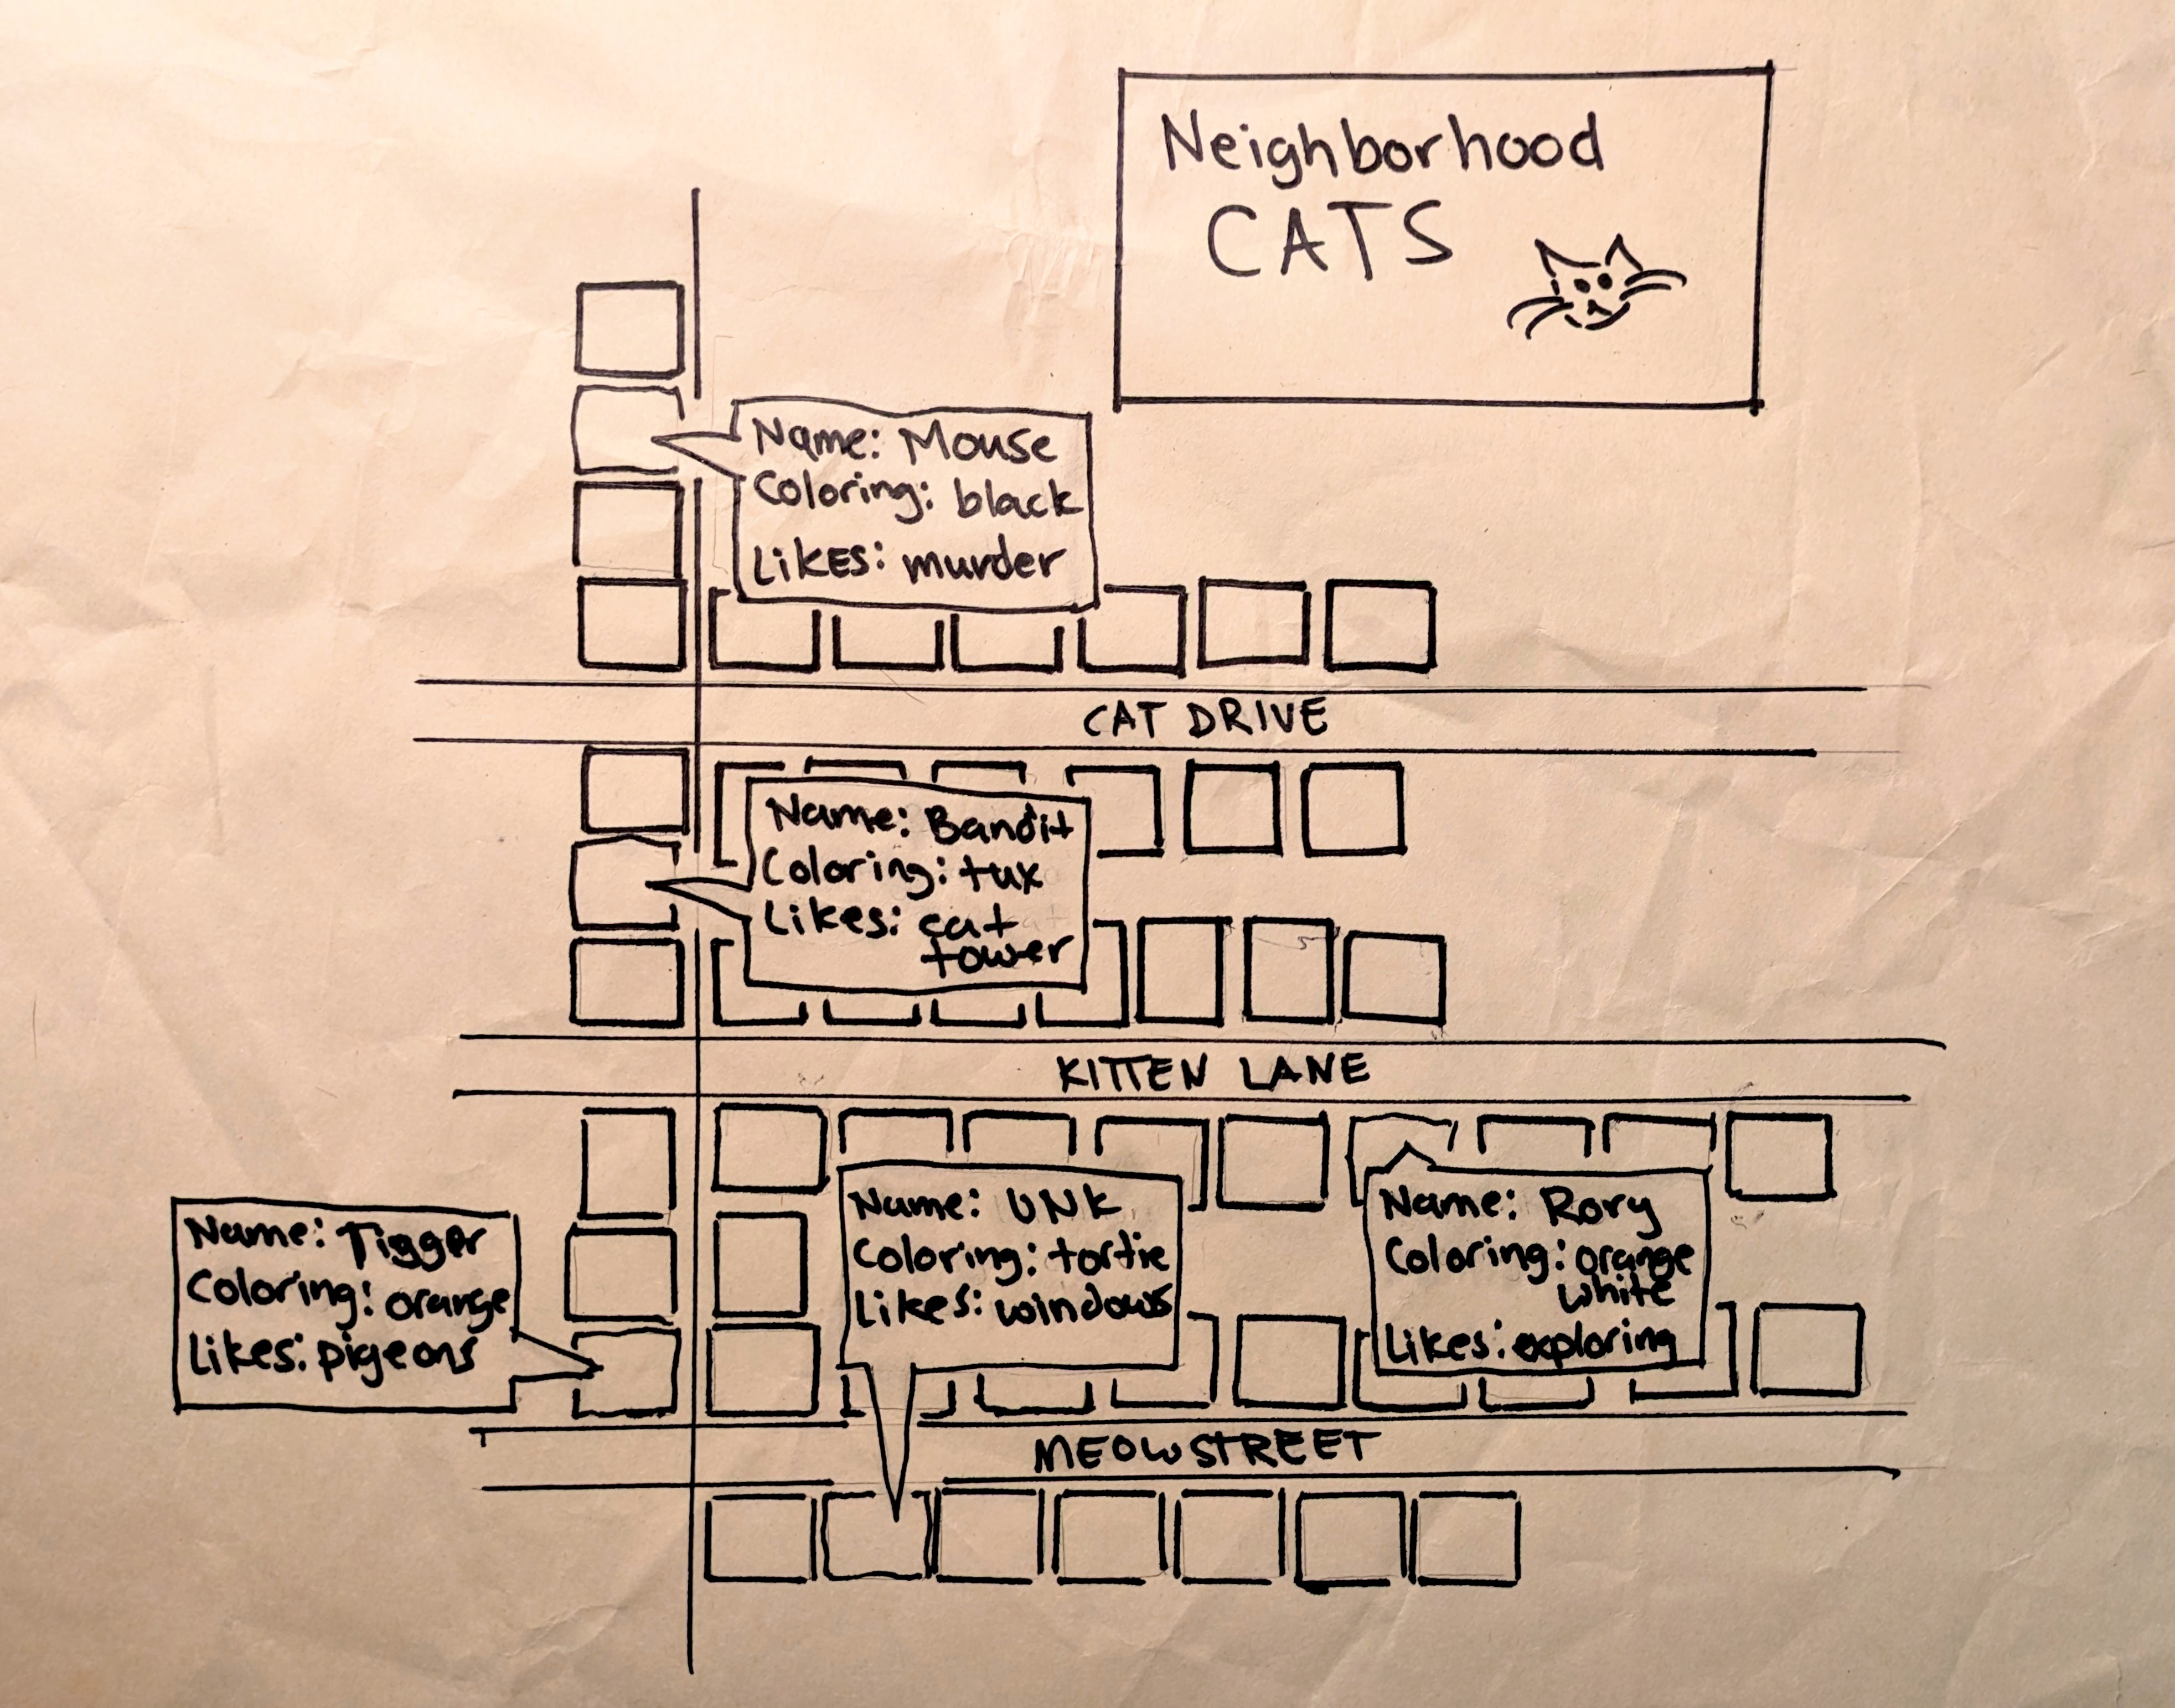 Neighborhood
CATS
Name: Mouse
Coloring: black
Likes: murder
CAT DRIVE
Name: Bandit
Coloring: tux
Likes: cat
tower
KITTEN LANE
Name: Tigger
Coloring: orange
Likes: pigeons
Name: UNK
Coloring: tortie
Likes: windows
Name: Rory
Coloring: orange
white
Likes: exploring
MEOW STREET